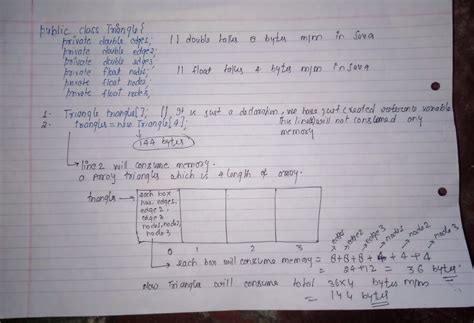 public class Triangle{
private double edge1; // double takes 8 bytes m/m in Java
private double edge2;
private double edge3;
private float node1; // float takes 4 bytes m/m in Java
private float node2;
private float node3;
1. Triangle triangles[]; // It is just a declaration, we have just created reference variable
This line will not consumed any
memory
2. triangles = new Triangle[4];
144 bytes
line 2 will consume memory.
a Array triangles which is 4 length of array.
triangles
each box
has edge1,
edge2,
edge3
node1, node2,
node3
0 1 2 3
edge1 edge2 edge3 node1 node2 node3
each box will consume memory = 8+8+8+4+4+4
= 24+12 = 36 bytes
Now Triangles will consume total 36x4 bytes m/m
= 144 bytes